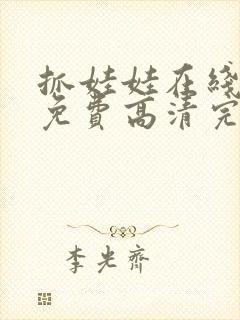 抓娃娃在线
免费高清完
李光齐